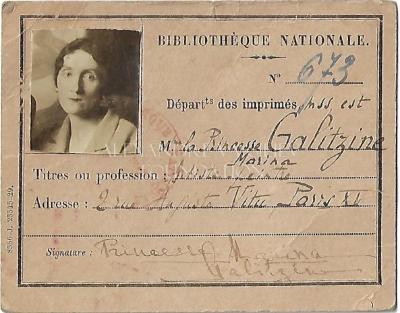 BIBLIOTHÈQUE NATIONALE.
N° 673
Départts des imprimés, mss, est
M. la Princesse Galitzine
Marina
Titres ou profession : artiste peintre
Adresse : 2 rue Auguste Vitu Paris XV
Signature : Princesse Marina
Galitzine
8556-J. 23545-29.